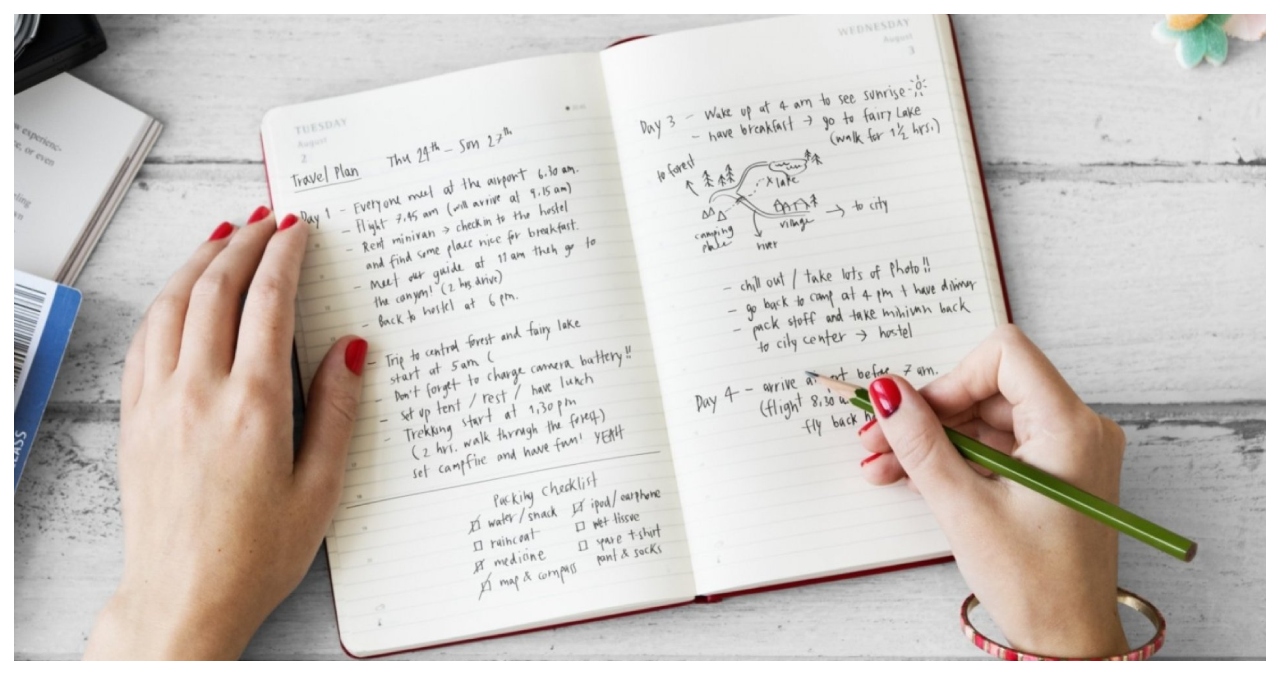 w experienc-
ce, or even
CLASS
TUESDAY
August
2
Travel Plan Thu 24th - Sun 27th
Day 1 - Everyone meet at the airport 6.30 am.
- Flight 7.45 am (will arrive at 9.15 am)
- Rent minivan → check in to the hostel
and find some place nice for breakfast.
- Meet our guide at 11 am then go to
the canyon! (2 hrs drive)
- Back to hostel at 6 pm.
- Trip to central forest and fairy lake
start at 5 am (
Don't forget to charge camera battery!!
- set up tent / rest / have lunch
- Trekking start at 1.30 pm
(2 hrs. walk through the forest)
set campfire and have fun! YEAH
Packing Checklist
water/snack
raincoat
medicine
map & compass
ipod/earphone
wet tissue
spare t-shirt
pant & socks
WEDNESDAY
August
3
Day 3 - Wake up at 4 am to see sunrise
- have breakfast → go to fairy Lake
(walk for 1½ hrs.)
to forest
lake
camping
village
river
→ to city
- chill out / take lots of photo!!
- go back to camp at 4 pm + have dinner
- pack stuff and take minivan back
to city center → hostel
Day 4 - arrive before 7 am.
(flight 8.30
fly back